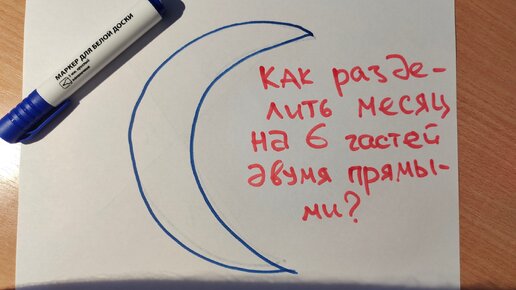 МАРКЕР ДЛЯ БЕЛОЙ ДОСКИ
Как разде-
лить месяц
на 6 частей
двумя прямы-
ми?